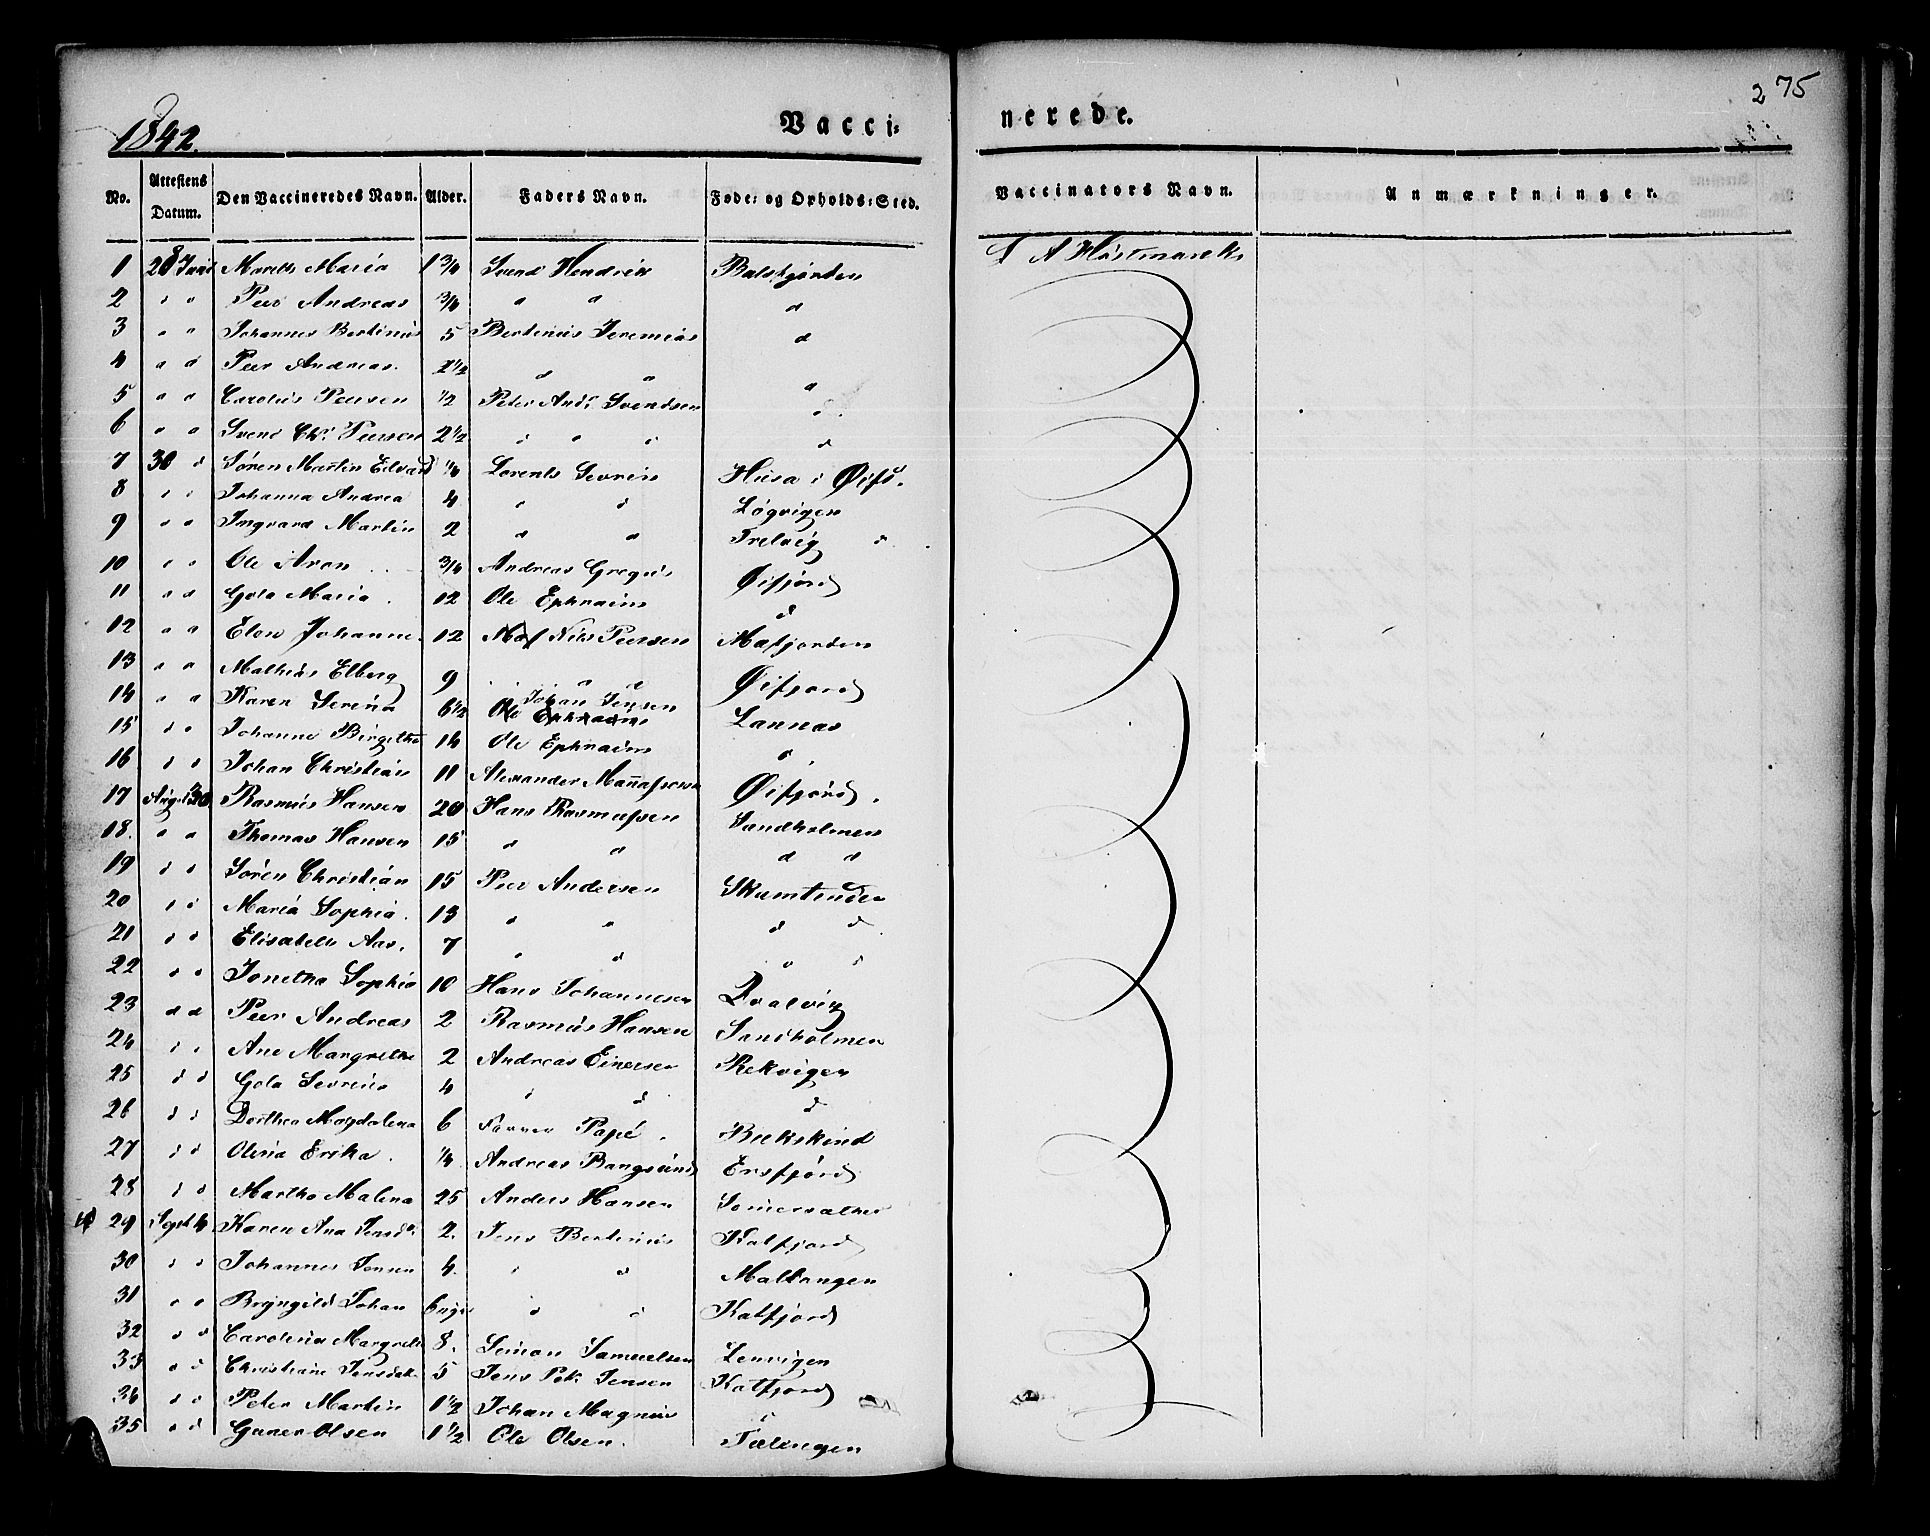 275
1842.
Vacci=
nerede.
No. Attestens Datum. Den Vaccineredes Navn. Alder. Faders Navn. Føde= og Opholds=Sted. Vaccinators Navn. Anmærkninger.
1 28 Maria 1 3/4 Svend Hendrik Balsfjorden A Høstmark
2 " " Peer Andreas 3/4 " " "
3 " " Johannes Bertinus 5 Bertinus Jeremias "
4 " " Peer Andreas. 2 1/2 " " "
5 " " Carolus Peersen 1/2 Peter Andr. Svendsen "
6 " " Svend Chr. Peersen 2 1/2 " " " "
7 30 " Søren Martin Edvard 1/4 Lorents Sevrin Husa i Øifd.
8 " " Johanna Andrea 4 " " Løgvigen
9 " " Ingvard Martin 2 " " Trelvig "
10 " " Ole Aron 3/4 Andreas Gregus Øifjord
11 " " Golo Maria 12 Ole Ephraims "
12 " " Elen Johanne 12 Nils Peersen Mafjorden
13 " " Mathias Elberg 9 " " Øifjord
14 " " Karen Serina 6 1/2 Johan Jensen Lannas
15 " " Johanne Birgitha 14 Ole Ephraims "
16 " " Johan Christian 11 Alexander Øifjord.
17 August 30 Rasmus Hansen 20 Hans Rasmussen Sandholmen
18. " " Thomas Hansen 15 " " " "
19 " " Søren Christian 15 Peer Andersen
20 " " Maria Sophia. 13 " " " "
21 " " Elisabeth Aas. 7 " " " "
22 " " Jonetha Sophia 10 Hans Johannesen Qvalvig
23 " " Peer Andreas 2 Rasmus Hansen Sandholmen
24 " " Ane Margrethe 2 Andreas Einersen Rekvigen
25 " " Golo Sevrine 4 " " "
26 " " Dorthea Magdalena 6
27 " " Olina Erika. 1/4 Andreas Bangsund Ersfjord
28 " " Martha Malena 25 Anders Hansen
29 Sept 4 Karen Ana Jensd. 2. Jens Bertinus Katfjord
30 " " Johannes Jensen 4. " " Malangen
31 " " Johan " " Katfjord
32 " " Carolina Margreth 8. Simon Samuelsen Lenvigen
33 " " Christiane Jensdat. 5 Jens Jensen Katfjord
34 " " Peter Martin 1 1/2 Johan Magnus "
35 " " Olsen 1 1/2 Ole Olsen.